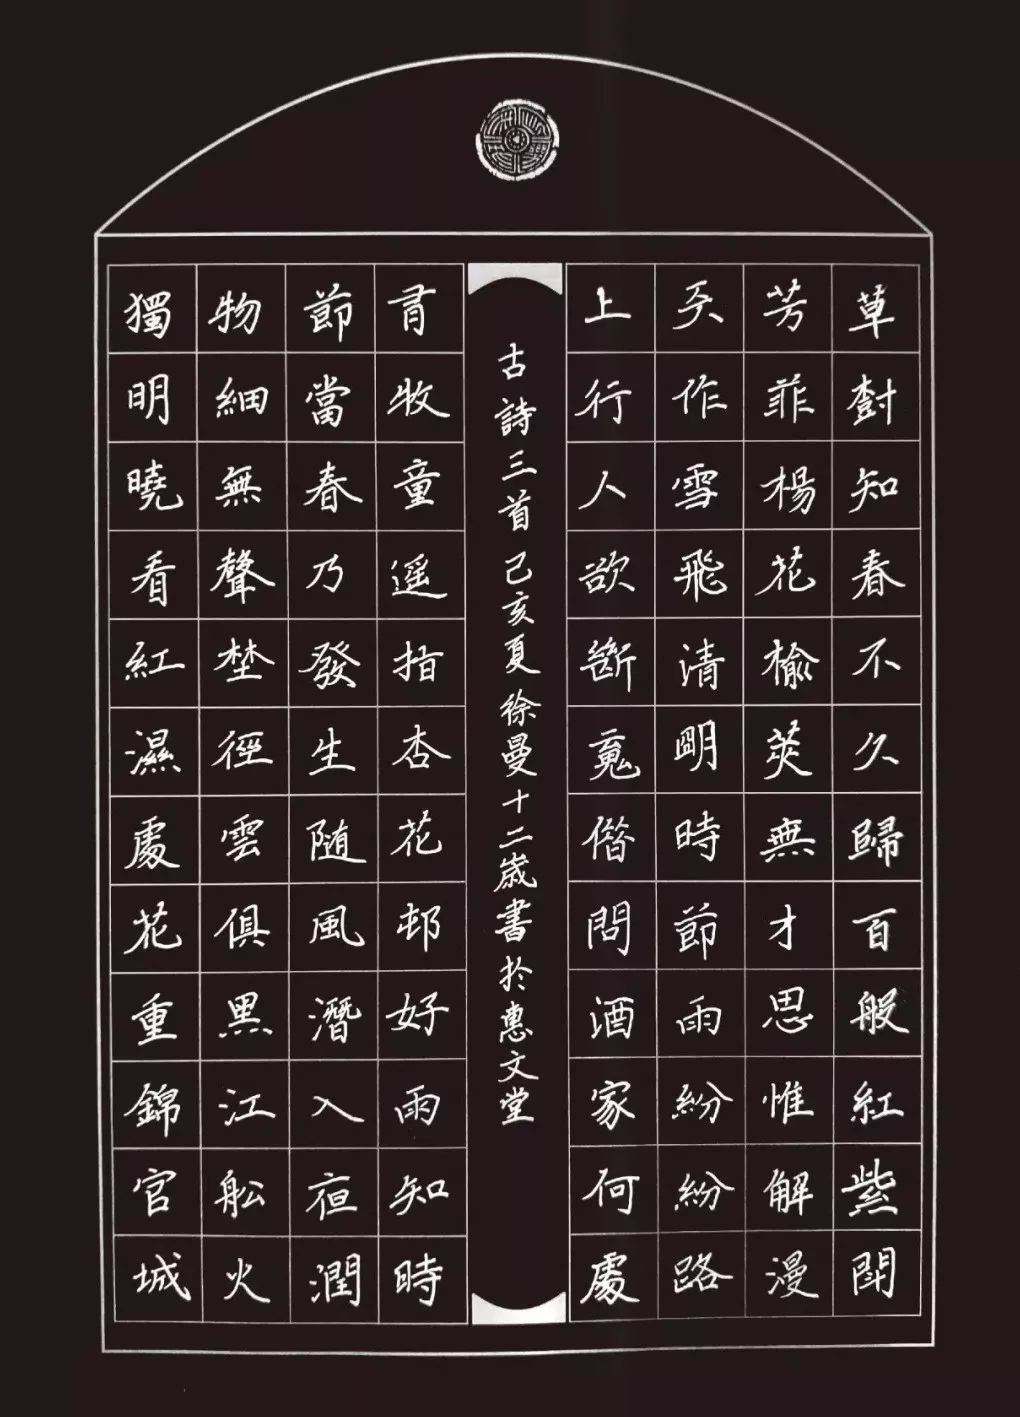 草樹知春不久歸百般紅紫鬥
芳菲楊花榆莢無才思惟解漫
天作雪飛清明時節雨紛紛路
上行人欲斷魂借問酒家何處
有牧童遥指杏花邨好雨知時
節當春乃發生随風潛入夜潤
物細無聲埜徑雲俱黑江船火
獨明曉看紅濕處花重錦官城
古詩三首己亥夏徐曼十二歲書於惠文堂